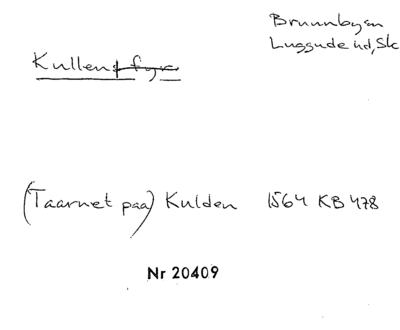 Brunnbyсn
Luggude hd, Sk
Kullens fyr
(Taarnet paa) Kulden 1564 KB 478
Nr 20409